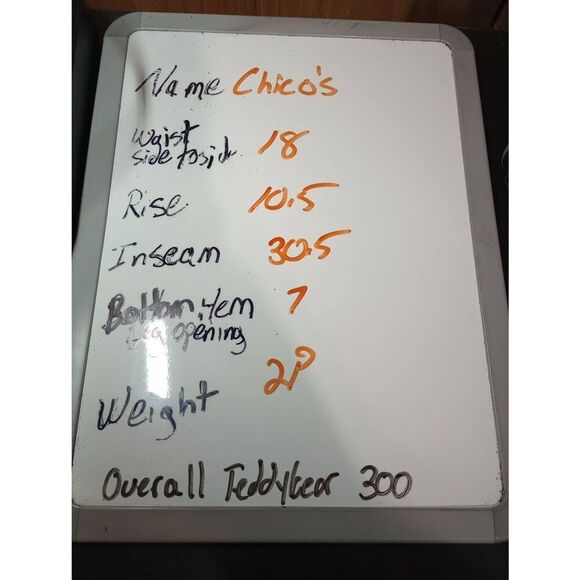 Name Chico's
Waist
side to side 18
Rise 10.5
Inseam 30.5
Bottom Hem 7
Leg opening
Weight
Overall Teddybear 300